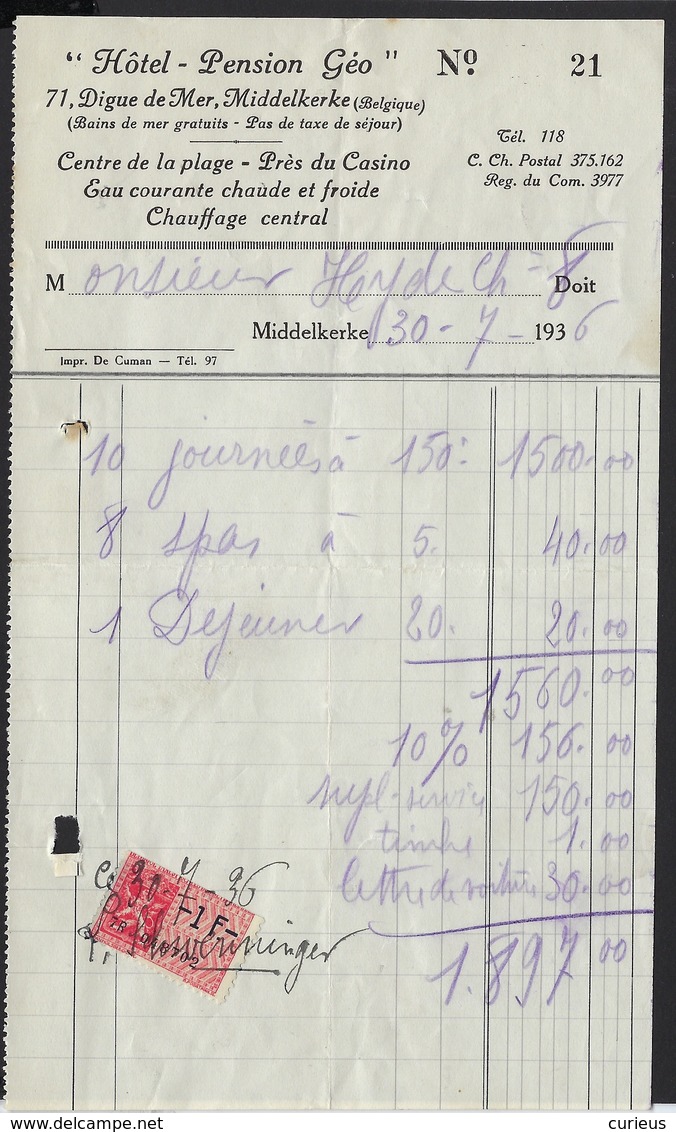 " Hôtel - Pension Géo " Nº 21
71, Digue de Mer, Middelkerke (Belgique)
(Bains de mer gratuits - Pas de taxe de séjour)
Tél. 118
C. Ch. Postal 375.162
Reg. du Com. 3977
Centre de la plage - Près du Casino
Eau courante chaude et froide
Chauffage central
Monsieur Ch = 8 Doit
Middelkerke 30-7-1936
Impr. De Cuman — Tél. 97
10 journées à 150: 1500.00
8 à 5. 40.00
1 Dejeuner 20. 20.00
1560.00
10% 156.00
150.00
timbre 1.00
lettre de voiture 30.00
1.897 00
30-7-36
-1F-
delcampe.net
curieus